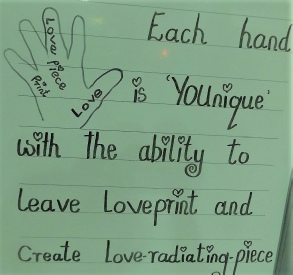 Love piece
Print
Love
Each hand
is 'YOUnique'
with the ability to
leave Loveprint and
Create Love-radiating-piece